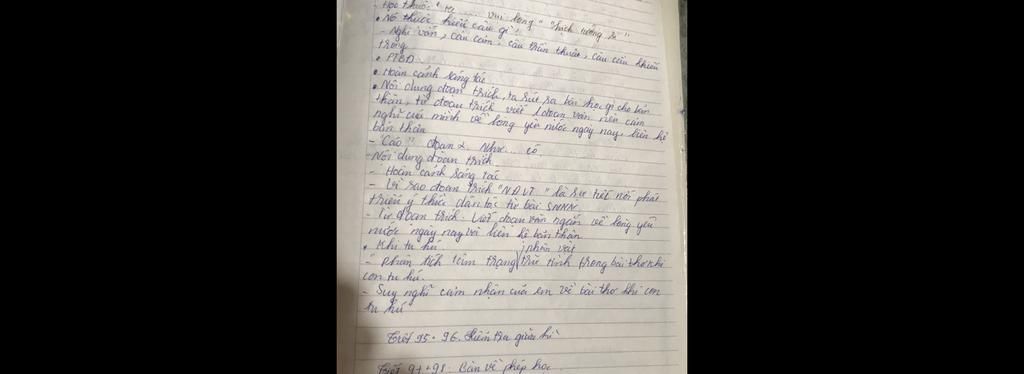 - Học thuộc "Ta ... vui lòng" "Hịch tướng sĩ"
• Nó thuộc kiểu câu gì?
- Nghi vấn, câu cảm, câu trần thuật, câu cầu khiến
trong
• PTBĐ
• Hoàn cảnh sáng tác
• Nội dung đoạn trích, ta rút ra bài học gì cho bản
thân, từ đoạn trích viết 1 đoạn văn nêu cảm
nghĩ của mình về lòng yêu nước ngày nay, liên hệ
bản thân
- "Cáo" đoạn 2. Như... có
- Nội dung đoạn trích
- Hoàn cảnh sáng tác
- Vì sao đoạn trích "NĐVT" là sự tiết nối phát
triển ý thức dân tộc từ bài SNNN
- Từ đoạn trích. Viết đoạn văn ngắn về lòng yêu
nước ngày nay và liên hệ bản thân
• Khi tu hú
- phân tích tâm trạng nhân vật trữ tình trong bài thơ khi
con tu hú.
- Suy nghĩ cảm nhận của em về bài thơ khi con
tu hú
Tiết 95 + 96. Kiểm tra giữa kì
Tiết 97 + 98: Bàn về phép học